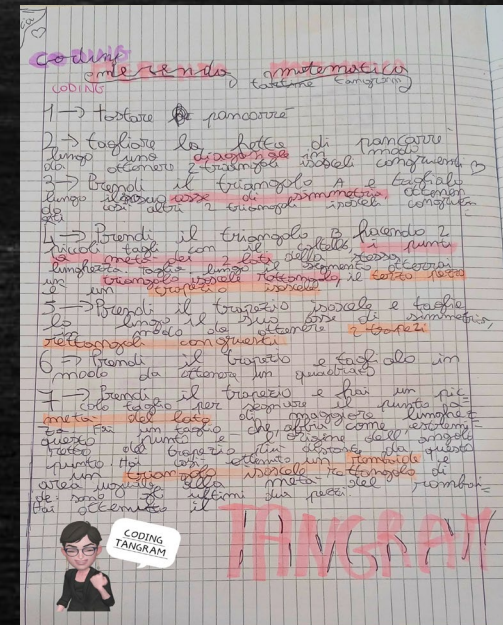 coding
merenda matematica
CODING (tartine tangram)
1 → tostare pancarrè
2 → tagliare la fetta di pancarrè
lungo una diagonale in modo
da ottenere 2 triangoli isosceli congruenti
3 → Prendi il triangolo A e taglialo
lungo il suo asse di simmetria, ottenen
do così altri 2 triangoli isosceli congruen
ti
4 → Prendi il triangolo B facendo 2
piccoli tagli con il coltello, i punti
la metà dei 2 lati della stessa
lunghezza. Taglia lungo il segmento otterrai
un triangolo isoscele rettangolo, il terzo pezzo
e un trapezio isoscele
5 → Prendi il trapezio isoscele e taglia
lo lungo il suo asse di simmetria
in modo da ottenere 2 trapezi
rettangoli congruenti
6 → Prendi il trapezio e taglialo in
modo da ottenere un quadrato
7 → Prendi il trapezio e fai un pic=
colo taglio per segnare il punto a
metà del lato di maggiore lunghez
za Fai un taglio che abbia come estremi
questo punto e l'origine dell'angolo
retto del trapezio più distante da questo
punto. Hai così ottenuto un romboide e
un triangolo isoscele rettangolo di
area uguale alla metà del romboi=
de: sono gli ultimi due pezzi.
Hai ottenuto il
TANGRAM
CODING
TANGRAM